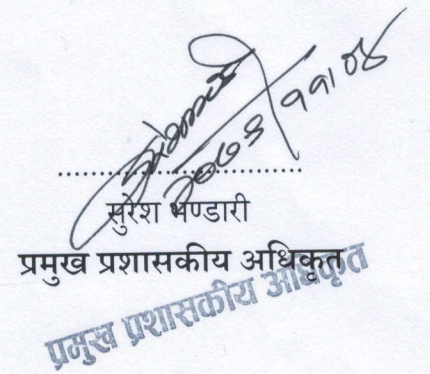 २०७९ ११।०४
सुरेश भण्डारी
प्रमुख प्रशासकीय अधिकृत
प्रमुख प्रशासकीय अधिकृत